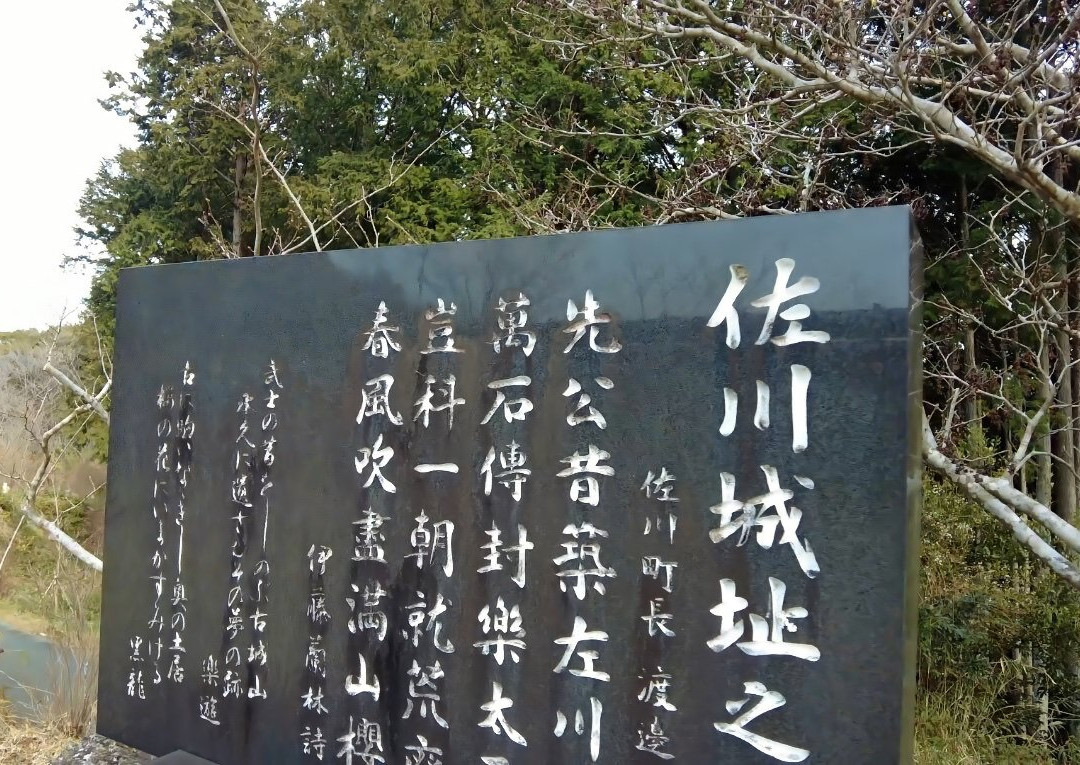 佐川城址之
佐川町長 渡邉
先公昔築左川
萬石傳封樂太
豈科一朝就荒
春風吹盡満山櫻
伊藤蘭林詩
武士の昔を のぶ古城山
永久に遺すその夢の跡
楽遊
古に駒いななきし奥の土居
桜の花によかすみける
黒龍